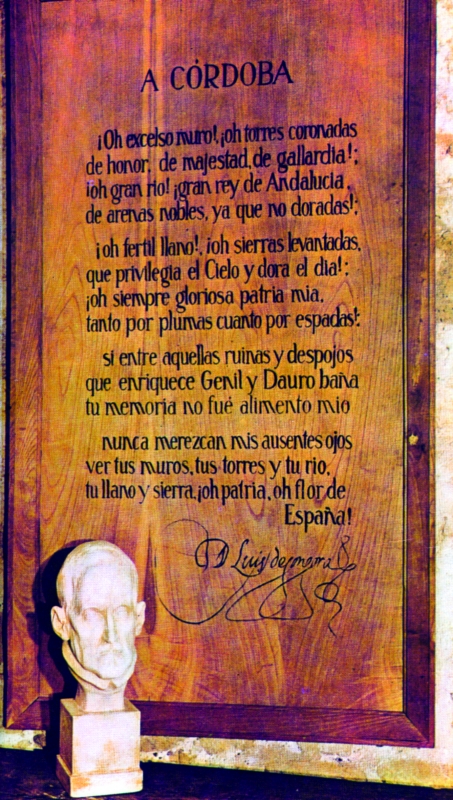 A CÓRDOBA
¡Oh excelso muro!, ¡oh torres coronadas
de honor, de majestad, de gallardia!;
¡oh gran rio! ¡gran rey de Andalucia,
de arenas nobles, ya que no doradas!;
¡oh fertil llano!, ¡oh sierras levantadas,
que privilegia el Cielo y dora el dia!:
¡oh siempre gloriosa patria mia,
tanto por plumas cuanto por espadas!:
si entre aquellas ruinas y despojos
que enriquece Genil y Dauro baña
tu memoria no fué alimento mio
nunca merezcan mis ausentes ojos
ver tus muros, tus torres y tu rio,
tu llano y sierra, ¡oh patria, oh flor de
España!
D Luis de gongora